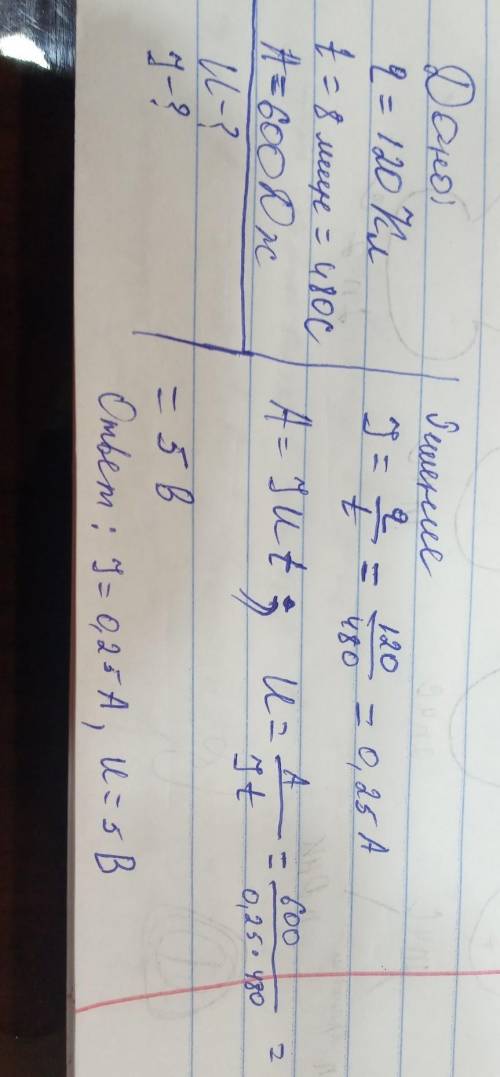 Дано:
q = 120 Кл
t = 8 мин = 480 С
A = 600 Дж
U - ?
I - ?
Решение
I = q/t = 120/480 = 0,25 А
A = IUt; U = A/It = 600/0,25·480 =
= 5 В
Ответ: I = 0,25 А, U = 5 В